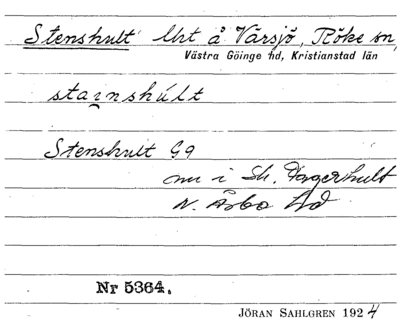 Stenshult Uht å Värsjö, Röke sn,
Västra Göinge hd, Kristianstad län
stai̯nshúlt
Stenshult G9
nu i Sk. Fagerhult
N. Åsbo hd
Nr 5364.
JÖRAN SAHLGREN 1924